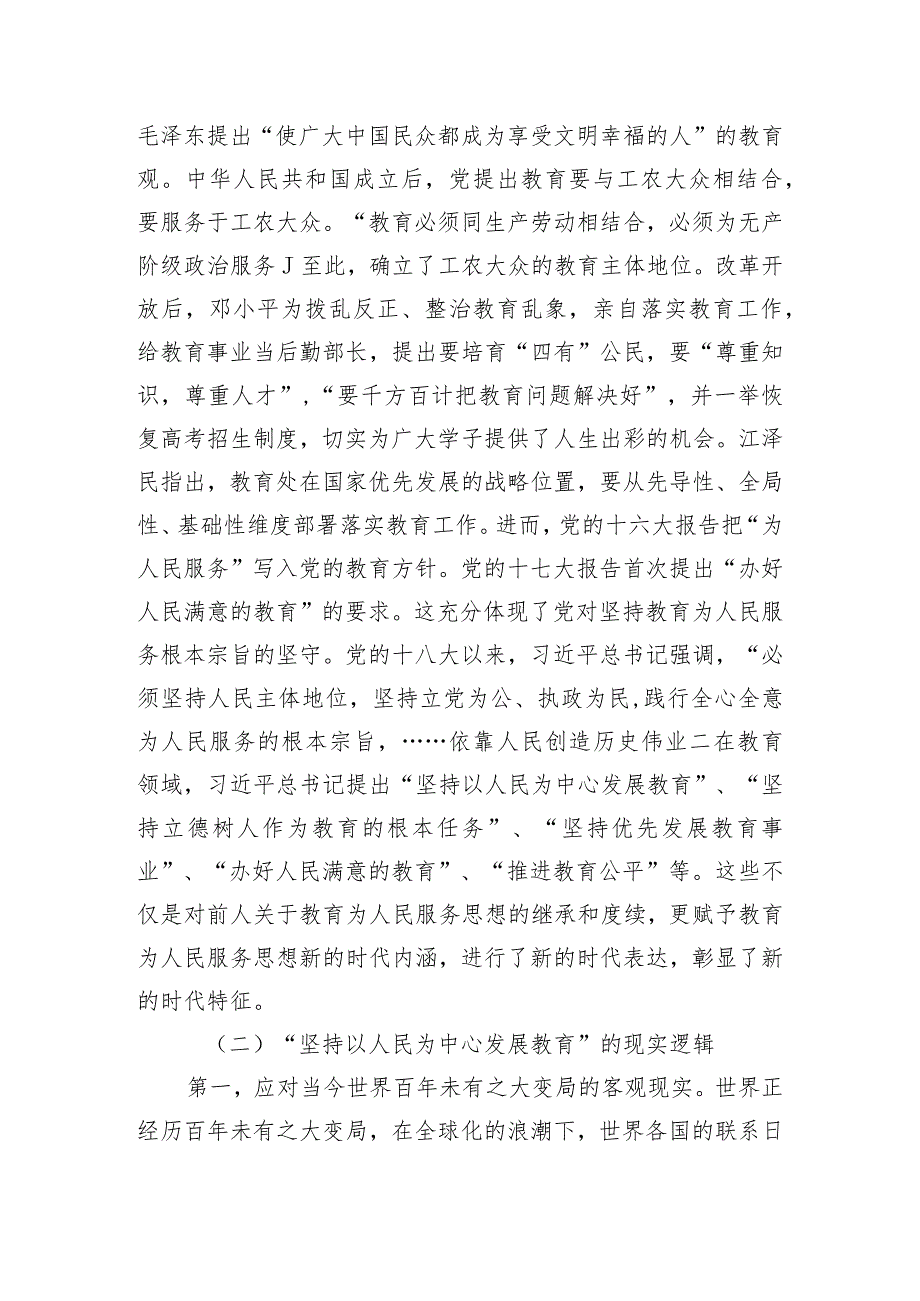 毛泽东提出“使广大中国民众都成为享受文明幸福的人”的教育
观。中华人民共和国成立后，党提出教育要与工农大众相结合，
要服务于工农大众。“教育必须同生产劳动相结合，必须为无产
阶级政治服务J至此，确立了工农大众的教育主体地位。改革开
放后，邓小平为拨乱反正、整治教育乱象，亲自落实教育工作，
给教育事业当后勤部长，提出要培育“四有”公民，要“尊重知
识，尊重人才”,“要千方百计把教育问题解决好”，并一举恢
复高考招生制度，切实为广大学子提供了人生出彩的机会。江泽
民指出，教育处在国家优先发展的战略位置，要从先导性、全局
性、基础性维度部署落实教育工作。进而，党的十六大报告把“为
人民服务”写入党的教育方针。党的十七大报告首次提出“办好
人民满意的教育”的要求。这充分体现了党对坚持教育为人民服
务根本宗旨的坚守。党的十八大以来，习近平总书记强调，“必
须坚持人民主体地位，坚持立党为公、执政为民,践行全心全意
为人民服务的根本宗旨，……依靠人民创造历史伟业二在教育
领域，习近平总书记提出“坚持以人民为中心发展教育”、“坚
持立德树人作为教育的根本任务”、“坚持优先发展教育事
业”、“办好人民满意的教育”、“推进教育公平”等。这些不
仅是对前人关于教育为人民服务思想的继承和度续，更赋予教育
为人民服务思想新的时代内涵，进行了新的时代表达，彰显了新
的时代特征。
（二）“坚持以人民为中心发展教育”的现实逻辑
第一，应对当今世界百年未有之大变局的客观现实。世界正
经历百年未有之大变局，在全球化的浪潮下，世界各国的联系日